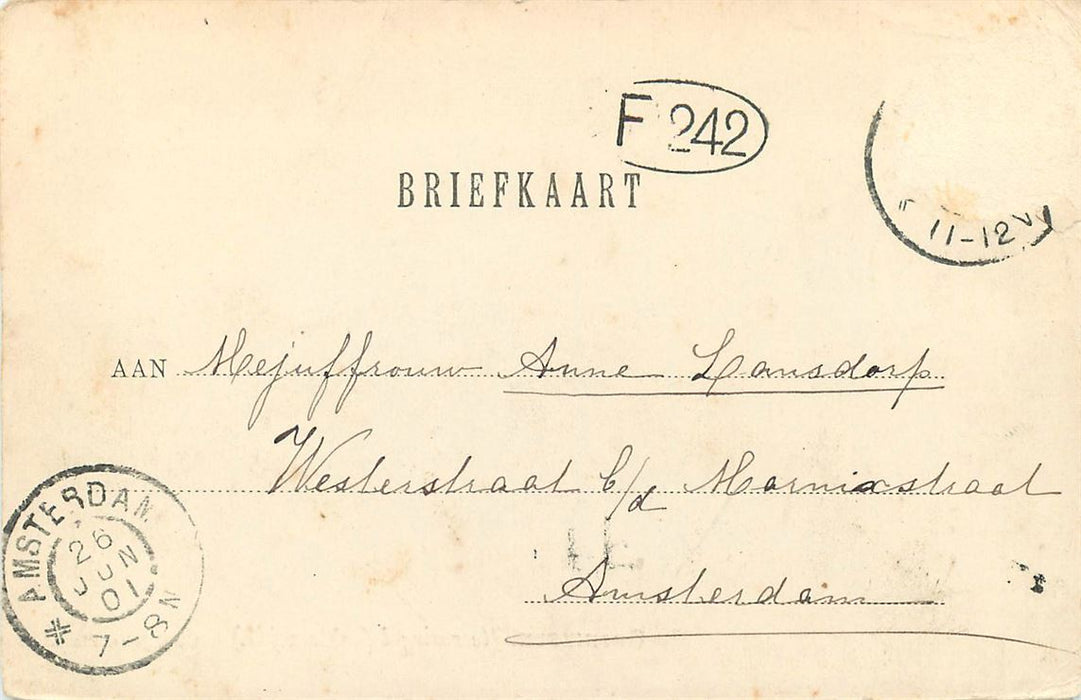 F 242
BRIEFKAART
11-12V
AAN Mejuffrouw Anne Lansdorp
Westerstraat b/d Marnixstraat
Amsterdam
AMSTERDAM
26
JUN
01
7-8N